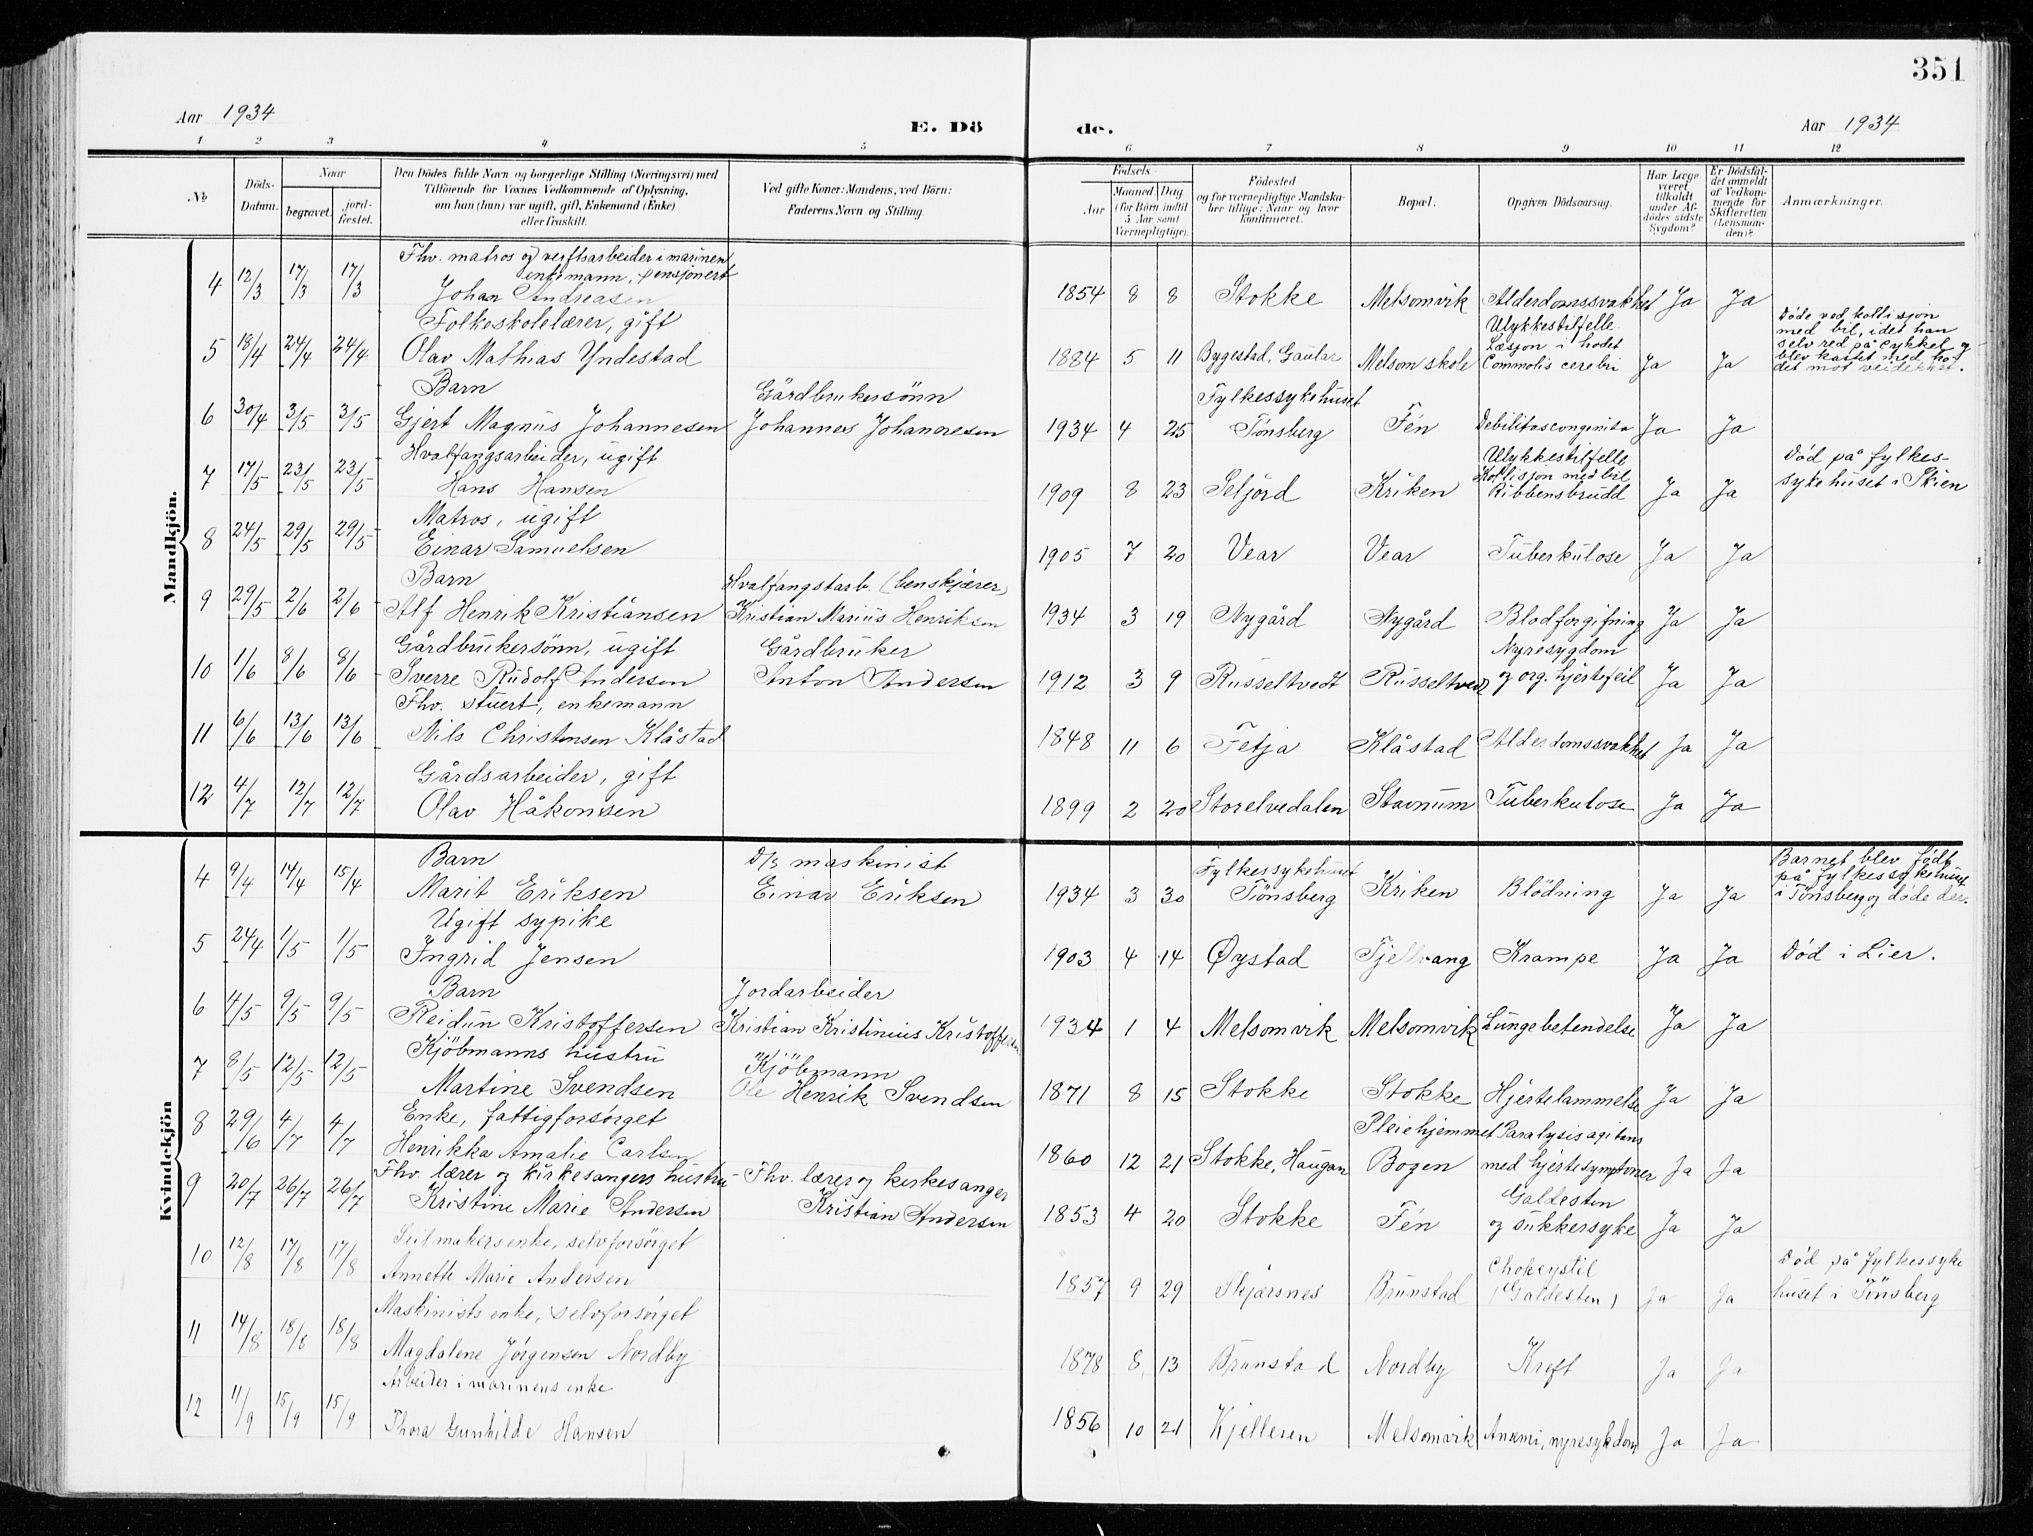 351
Aar 1934
E. Dö
de.
Aar 1934
1 2 3 4 5 6 7 8 9 10 11 12
No
Döds-Datum.
Naar
begravet.
jord-fæstet.
Den Dödes fulde Navn og borgerlige Stilling (Næringsvei) med
Tilföiende for Voxnes Vedkommende af Oplysning,
om han (hun) var ugift, gift, Enkemand (Enke)
eller fraskilt.
Ved gifte Koner: Mandens, ved Börn:
Faderens Navn og Stilling.
Födsels-
Aar
Maaned Dag
(for Börn indtil
5 Aar samt
Værnepligtige).
Födested
og for værnepligtige Mandska-
ber tillige: Naar og hvor
konfirmeret.
Bopæl.
Opgiven Dödsaarsag.
Har Læge
været
tilkaldt
under Af-
dödes sidste
Sygdom?
Er Dödsfal-
det anmeldt
af Vedkom-
mende for
Skifteretten
(Lensman-
den)?
Anmærkninger.
Mandkjön.
Fhv. matros og verftsarbeider i marinen
enkemann, pensjonert
4 12/3 17/3 17/3 Johan Andreasen 1854 8 8 Stokke Melsomvik Alderdomssvakhet Ja Ja
Folkeskolelærer, gift
5 18/4 24/4 24/4 Olav Mathias Yndestad 1884 5 11 Bygestad, Gaular Melsom skole
Ulykkestilfelle
Læsjon i hodet
Commotis cerebri Ja Ja
Døde ved kollisjon
med bil, idet han
selv red på cykkel og
blev kastet med ho-
det mot veidekket.
Barn Gårdbrukersønn Fylkessykehuset
6 30/4 3/5 3/5 Gjert Magnus Johannesen Johannes Johannesen 1934 4 25 Tønsberg Fén Debilitas congenita Ja Ja
Hvalfangsarbeider, ugift
7 17/5 23/5 23/5 Hans Hansen 1909 8 23 Seljord Kriken
Ulykkestilfelle
Kollisjon med bil
Ribbensbrudd Ja Ja
Død på fylkes-
sykehuset i Skien
Matros, ugift
8 24/5 29/5 29/5 Einar Samuelsen 1905 7 20 Vear Vear Tuberkulose Ja Ja
Barn Hvalfangstarb. (benskjærer)
9 29/5 2/6 2/6 Alf Henrik Kristiansen Kristian Marius Henriksen 1934 3 19 Nygård Nygård Blodforgifning Ja Ja
Gårdbrukersønn, ugift Gårdbruker Nyresygdom
10 1/6 8/6 8/6 Sverre Rudolf Andersen Anton Andersen 1912 3 9 Russeltvedt Russeltvedt og org. hjertefeil Ja Ja
Fhv. stuert, enkemann
11 6/6 13/6 13/6 Nils Christensen Klåstad 1848 11 6 Fetja Klåstad Alderdomssvakhet Ja Ja
Gårdsarbeider, gift
12 4/7 12/7 12/7 Olav Håkonsen 1899 2 20 Storelvedalen Stavnum Tuberkulose Ja Ja
Kvindekjön
Barn D/s maskinist Fylkessykehuset
4 9/4 14/4 15/4 Marit Eriksen Einar Eriksen 1934 3 30 Tönsberg Kriken Blödning Ja Ja
Barnet blev født
på fylkessykehuset
i Tönsberg og døde der.
Ugift sypike
5 24/4 1/5 1/5 Ingrid Jensen 1903 4 14 Øystad Fjellvang Krampe Ja Ja Død i Lier.
Barn Jordarbeider
6 4/5 9/5 9/5 Reidun Kristoffersen Kristian Kristinius Kristoffersen 1934 1 4 Melsomvik Melsomvik Lungebetendelse Ja Ja
Kjöbmanns hustru Kjöbmann
7 8/5 12/5 12/5 Martine Svendsen Ole Henrik Svendsen 1871 8 15 Stokke Stokke Hjertelammelse Ja Ja
Enke, fattigforsørget Pleiehjemmet Paralysis agitans
8 29/6 4/7 4/7 Henrikka Amalie Carlsen 1860 12 21 Stokke, Haugan Bogen med hjertesymptoner Ja Ja
Fhv. lærer og kirkesangers hustru Fhv. lærer og kirkesanger Galdesten
9 20/7 26/7 26/7 Kristine Marie Andersen Kristian Andersen 1853 4 20 Stokke Fén og sukkersyke Ja Ja
Seilmakers enke, selvforsørget Chokcystil Død på fylkessyke
10 12/8 17/8 17/8 Annette Marie Andersen 1857 9 29 Skjærsnes Brunstad (Galdesten) Ja Ja huset i Tönsberg
Maskinists enke, selvforsörget
11 14/8 18/8 18/8 Magdalene Jörgensen Nordby 1878 8 13 Brunstad Nordby Kreft Ja Ja
Arbeider i marinens enke
12 11/9 15/9 15/9 Thora Gunhilde Hansen 1856 10 21 Kjelleren Melsomvik Anæmi, nyresykdom Ja Ja